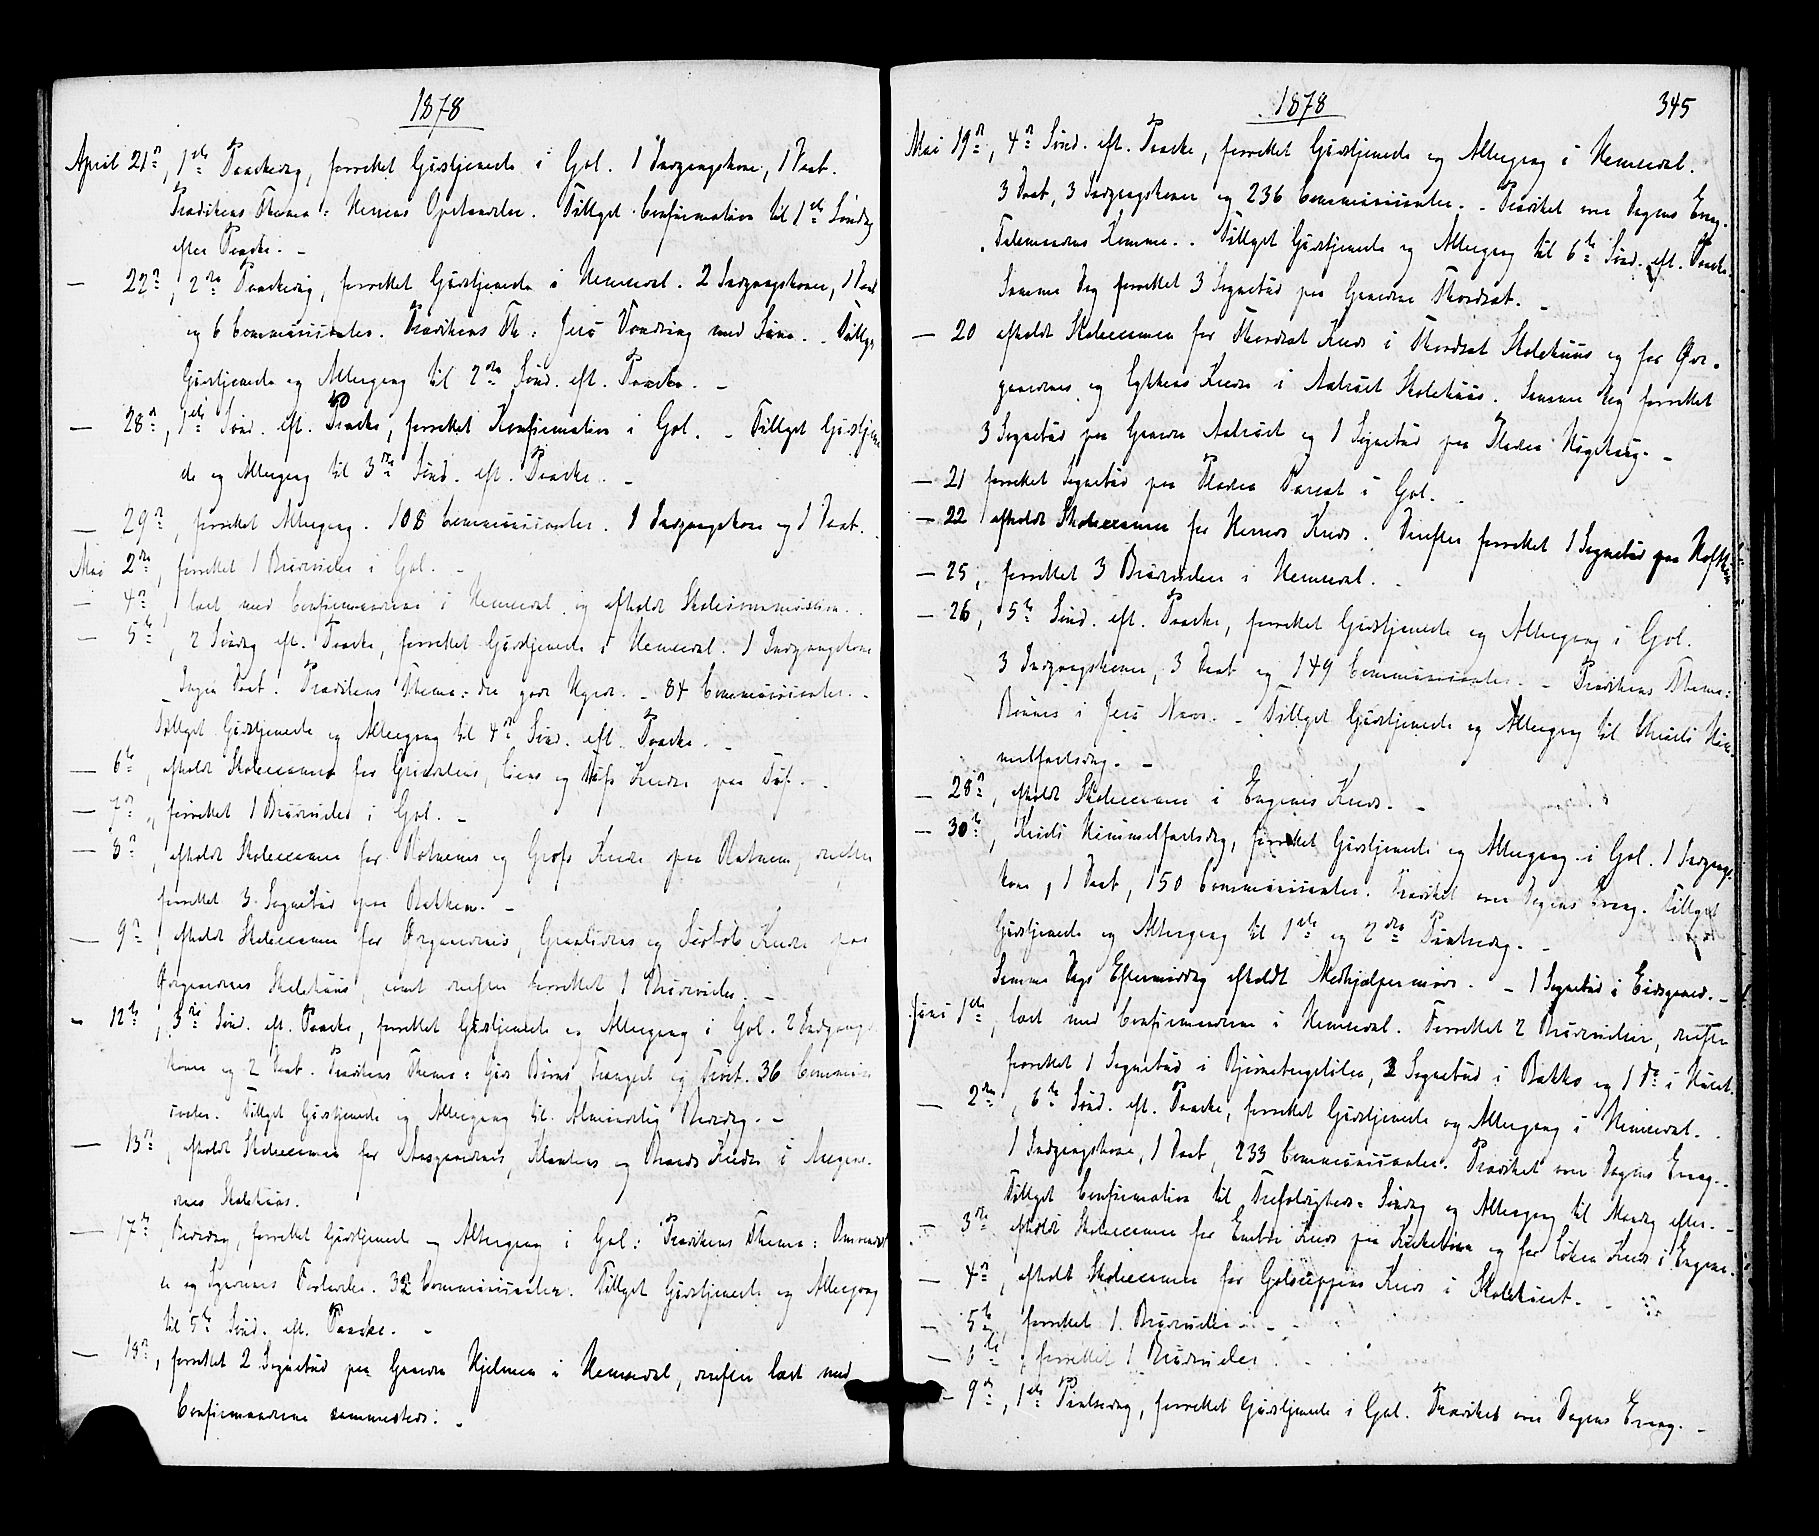 1878
April 21de, 1ste Paaskedag, forrettet Gudstjeneste i Gol. 1 Indgangskone, 1 Daab.
Prædikens Thema: Herrens Opstandelse. Tillyst Confirmation til 1ste Søndag
efter Paaske. –
– 22de, 2den Paaskedag, forrettet Gudstjeneste i Hemsedal. 2 Indgangskoner, 1 Daab
og 6 Communicanter. Prædikens Th: Jesu Vandring med Sine. – Tillyst
Gudstjeneste og Altergang til 2den Sønd. eft. Paaske. –
– 28de, 1ste Sønd. eft. Paaske, forrettet Konfirmation i Gol. – Tillyst Gudstjene-
ste og Altergang til 3die Sønd. eft. Paaske. –
– 29de, forrettet Altergang. 108 Communicanter. 1 Indgangskone og 1 Daab.
Mai 2den, forrettet 1 Brudevielse i Gol. –
– 4de, læst med Confirmanderne i Hemsedal og afholdt Skolecommission.
– 5te, 2 Søndag eft. Paaske, forrettet Gudstjeneste i Hemsedal. 1 Indgangskone
Ingen Daab. Prædikens Thema: den gode Hyrde. – 84 Communicanter. –
Tillyst Gudstjeneste og Altergang til 4de Sønd. eft. Paaske. –
– 6te, afholdt Skoleexamen for Grimdalens, Liens og Kredse paa –
– 7de, forrettet 1 Brudevielse i Gol. –
– 8de, afholdt Skoleexamen for Rotnems og Grøfs Kredse paa Rotnem, derefter
forrettet 3 Sognebud paa Bakken. –
– 9de, afholdt Skoleexamen for Ørgenernes, og Kredse paa
Ørgenernes Skolehuus, samt derefter forrettet 1 Brudevielse. –
– 12te, 3die Sønd. eft. Paaske, forrettet Gudstjeneste og Altergang i Gol. 2 Indgangs-
koner og 2 Daab. Prædikens Thema: Guds Børns Trængsel og Trøst. 36 Communi-
canter. Tillyst Gudstjeneste og Altergang til Almindelig Bededag. –
– 13de, afholdt Skoleexamen for og Kredse i
Skolehuus.
– 17de, Bededag, forrettet Gudstjeneste og Altergang i Gol: Prædikens Thema:
og 32 Communicanter. Tillyst Gudstjeneste og Altergang
til 5te Sønd. eft. Paaske. –
– 18de, forrettet 2 Sognebud paa Gaarden Hjelmen i Hemsedal, derefter læst med
Confirmanderne sammesteds. –
1878
345
Mai 19de, 4de Sønd. eft. Paaske, forrettet Gudstjeneste og Altergang i Hemsedal.
3 Daab, 3 Indgangskoner og 236 Communicanter. – Prædiket over Dagens Evang.
Talsmandens Komme. Tillyst Gudstjeneste og Altergang til 6te Sønd. eft. Paaske.
Samme Dag forrettet 3 Sognebud paa Gaardene Thordset. –
– 20 afholdt Skoleexamen for Thordset Kreds i Thordset Skolehuus og for
og Lykkens Kreds i Skolehuus. Samme Dag forrettet
3 Sognebud paa Gaarden og 1 Sognebud paa Pladsen –
– 21 forrettet Sognebud paa Pladsen i Gol. –
– 22 afholdt Skoleexamen for Kreds. Derefter forrettet 1 Sognebud paa
– 25, forrettet 3 Brudevielser i Hemsedal. –
– 26, 5te Sønd. eft. Paaske, forrettet Gudstjeneste og Altergang i Gol.
3 Indgangskoner, 3 Daab og 149 Communicanter. – Prædikens Thema:
Bønnen i Jesu Navn. – Tillyst Gudstjeneste og Altergang til Christi Him-
melfartsdag. –
– 28de, afholdt Skoleexamen i Engenes Kreds. –
– 30te, Christi Himmelfartsdag, forrettet Gudstjeneste og Altergang i Gol. 1 Indgangs-
kone, 1 Daab, 150 Communicanter. Prædiket over Dagens Evang. Tillyst
Gudstjeneste og Altergang til 1ste og 2den Pintsedag. –
Samme Dags Eftermiddag afholdt Medhjælpermøde. – 1 Sognebud i Eidsgaard. –
Juni 1ste, læst med Confirmanderne i Hemsedal. Forrettet 2 Brudevielser, derefter
forrettet 1 Sognebud i Bjørnebergstølen, 2 Sognebud i Bakke og 1 do i
– 2den, 6te Sønd. eft. Paaske, forrettet Gudstjeneste og Altergang i Hemsedal.
1 Indgangskone, 1 Daab, 233 Communicanter. Prædiket over Dagens Evang. –
Tillyst Confirmation til Trefoldigheds-Søndag og Altergang til Mandag efter. –
– 3die afholdt Skoleexamen for Kreds paa og for Løken Kreds i
– 4de, afholdt Skoleexamen for Kreds i Skolehuset. –
– 5te, forrettet 1 Brudevielse. –
– 6te, forrettet 1 Brudevielse. –
– 9de, 1ste Pintsedag, forrettet Gudstjeneste i Gol. Prædiket over Dagens Evang. –